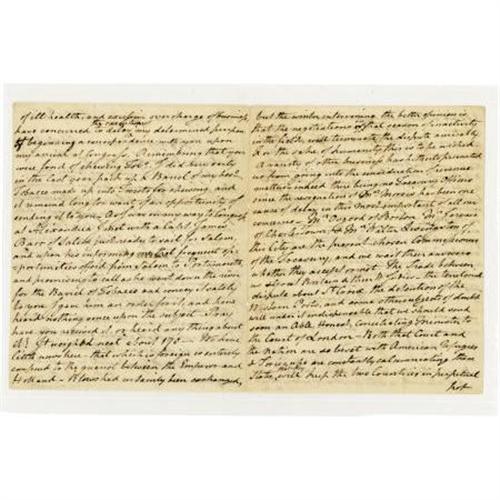 of ill health, and cousin overcharge of business,
have concurred to delay my determined purpose
of beginning a correspondence with you upon
my arrival at Congress. Remembering that you
were fond of chewing Tobo. I did here early
in the last year pack up a Barrel of my best
Tobacco made up into Twists for chewing, and
it remained long for want of an opportunity of
sending it to you. As I was on my way to Congress
at Alexandria I met with a Capt James
Barr of Salem just ready to sail for Salem,
and upon his informing me of frequent op-
portunities offered from Salem to Portsmouth,
and promising to call as he went down the river
for the Barrel of Tobacco and convey it safely
to you I gave him an order for it, and have
heard nothing since upon the subject. Pray
have you received it, or heard any thing about
it? It weighed neat about 170 — We have
little new here that which is foreign is entirely
confined to the quarrel between the Emperor and
Holland — Blows had certainly been exchanged,
but the winter intervening the better opinion is
that the negotiations of that season of inactivity
in the field, will terminate the dispute amicably
For the sake of humanity this is to be wished.
A variety of other business has hitherto prevented
us from going into the consideration of revenue
matters, indeed there being no Treasury Officer
since the resignation of Mr. Morris has been one
cause of delay in this most important of all our
concerns — Mr. Osgood of Boston Mr. Gervais
of Charles Town & Mr. Walter Livingston of
this City are the present chosen Commissioners
of the Treasury, and we wait their answers
whether they accept or not. The Trade between
us & Great Britain & their W. Indies — the territorial
dispute about St. Croix, the detention of the
Western Posts, and some other subjects of doubt
will render it indispensable that we should send
soon an Able, Honest, Conciliating Minister to
the Court of London — Both that Court and
the Nation are so beset with American Refugees
& Tories who are constantly calumniating these
States, that they will keep the two Countries in perpetual